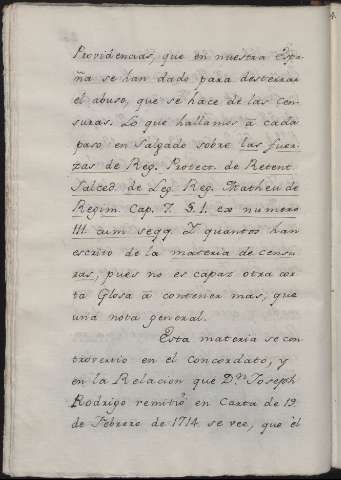 Providencias, que en nuestra Espa-
ña se han dado para desterrar
el abuso, que se hace de las cen-
suras. Lo que hallamos à cada
paso en Salgado sobre las fuer-
zas de Reg. Protect. de Retent.
Salced. de Leg. Reg. Matheu de
Regim. Cap. 7. §. 1. ex numero
111 cum seqq. Y quantos han
escrito de la materia de censu
ras, pues no es capaz otra cor
ta Glosa à contener mas, que
una nota general.
Esta materia se con
trovertio en el Concordato, y
en la Relacion que Dn. Joseph
Rodrigo remitiò en Carta de 19
de Febrero de 1714 se vee, que èl